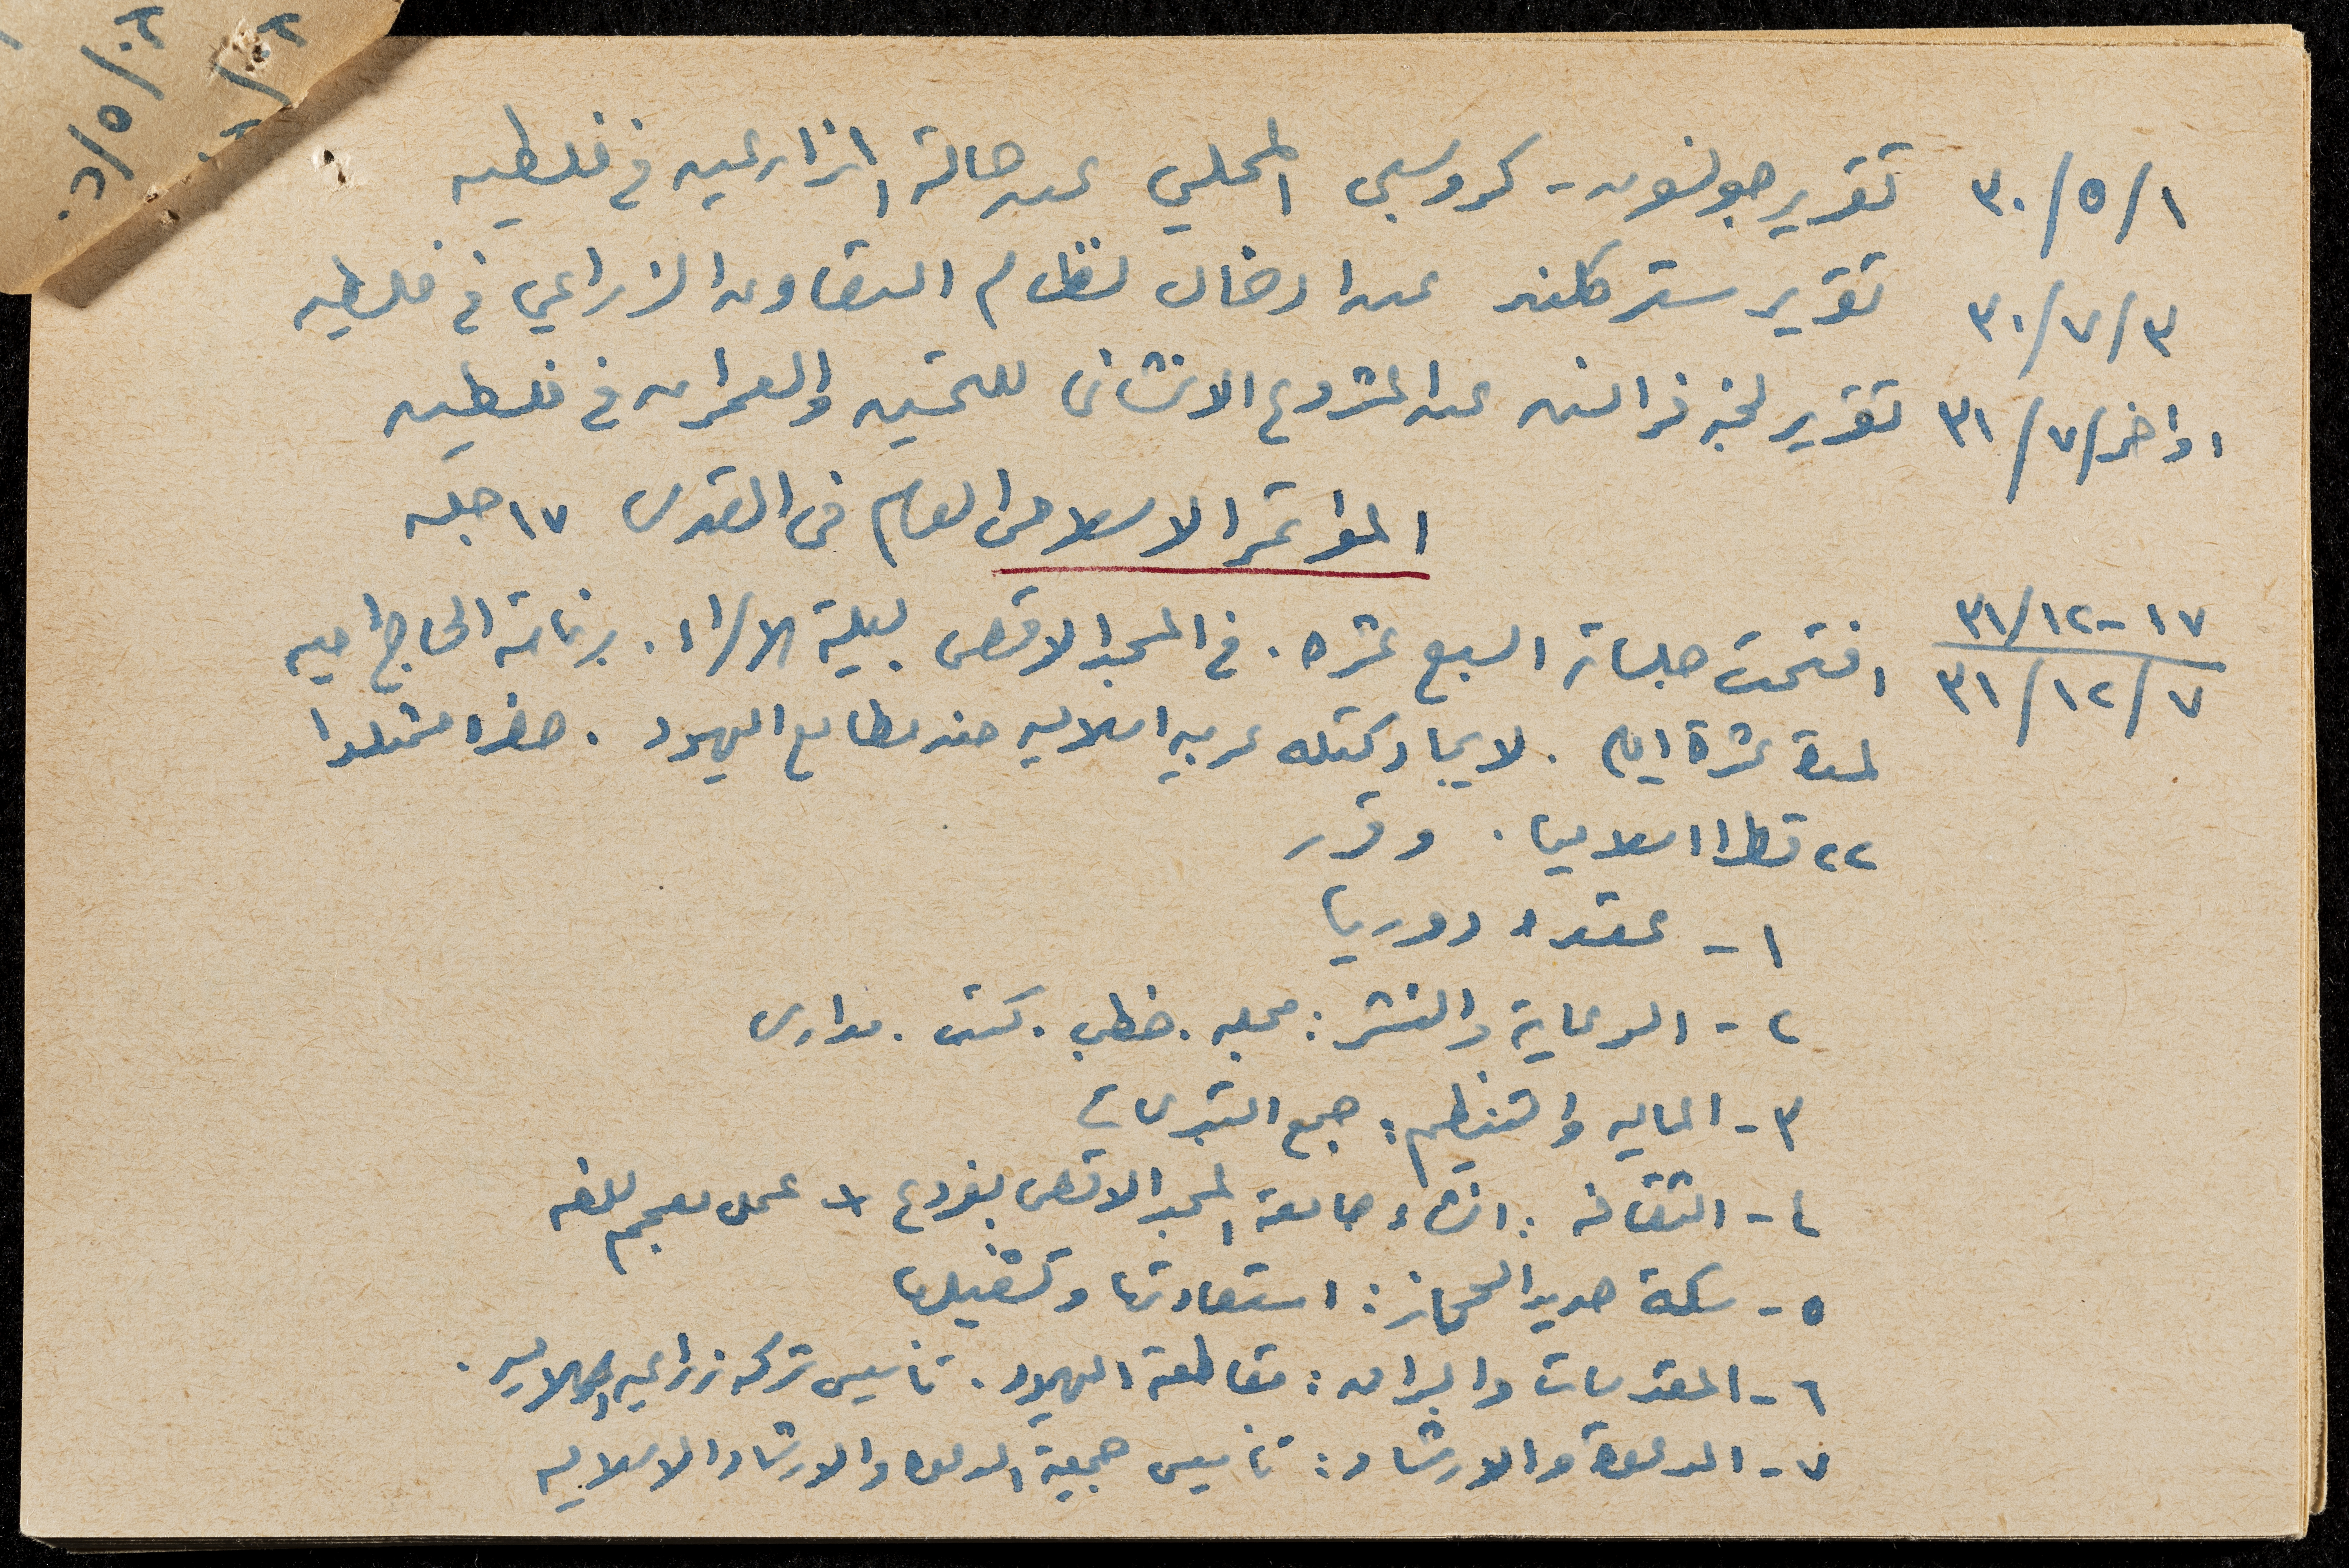 ١/٥/٣٠ تقرير جونسون - كروسبي المحلي عن حالة المزارعين في فلسطين
٣/٧/٣٠ تقرير ستركلند عن ادخال نظام التعاون الزراعي في فلسطين
اواخر/٧/٣١ تقرير لجنة فرانسن عن المشروع الانشائي للتحسين والعمران في فلسطين
المؤتمر الاسلامي العام في القدس ١٧ جلسه
١٧-١٢/٣١
٧/١٢/٣١ افتتحت جلساته السبع عشره. في المسجد الاقصى ليلة الاسراء. برئاسة الحاج امين
لمدة عشرة ايام. لايجاد كتله عربيه اسلاميه ضد مطامع اليهود. حضره ممثلوا
٢٢ قطرا اسلاميا. وقرر
١- عقده دوريا
٢- الدعاية والنشر: مجله. خطب. كتب. مدارس
٣- الماليه والتنظيم: جمع التبرعات
٤- الثقافه: انشاء جامعة المسجد الاقصى بفروع + عمل معجم للغه
٥- سكة حديد الحجاز: استعادتها وتشغيلها
٦- المقدسات والبراق: مقاطعة اليهود. تأسيس شركه زراعيه اسلاميه.
٧- الدعوة والارشاد: تأسيس جمعية الدعوه والارشاد الاسلاميه